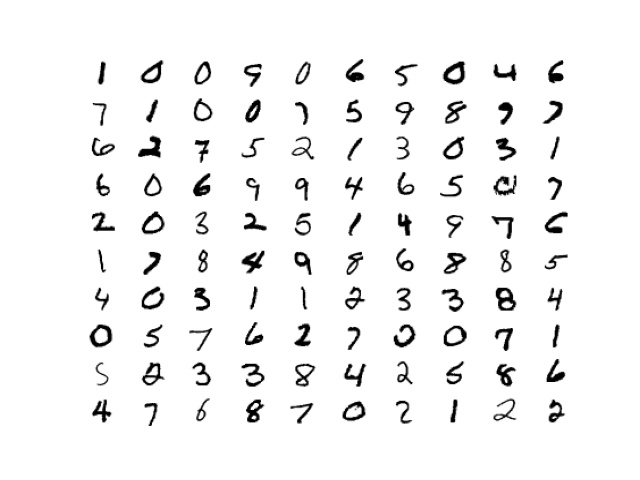 1 0 0 9 0 6 5 0 4 6
7 1 0 0 7 5 9 8 9 7
6 2 7 5 2 1 3 0 3 1
6 0 6 9 9 4 6 5 0 7
2 0 3 2 5 1 4 9 7 6
1 7 8 4 9 8 6 8 8 5
4 0 3 1 1 2 3 3 8 4
0 5 7 6 2 7 0 0 7 1
5 2 3 3 8 4 2 5 8 6
4 7 6 8 7 0 2 1 2 2